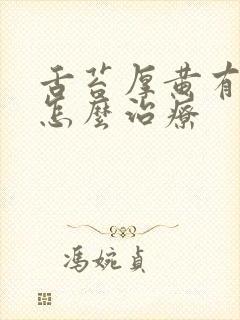 舌苔厚黄有
怎麼治療
馮婉貞